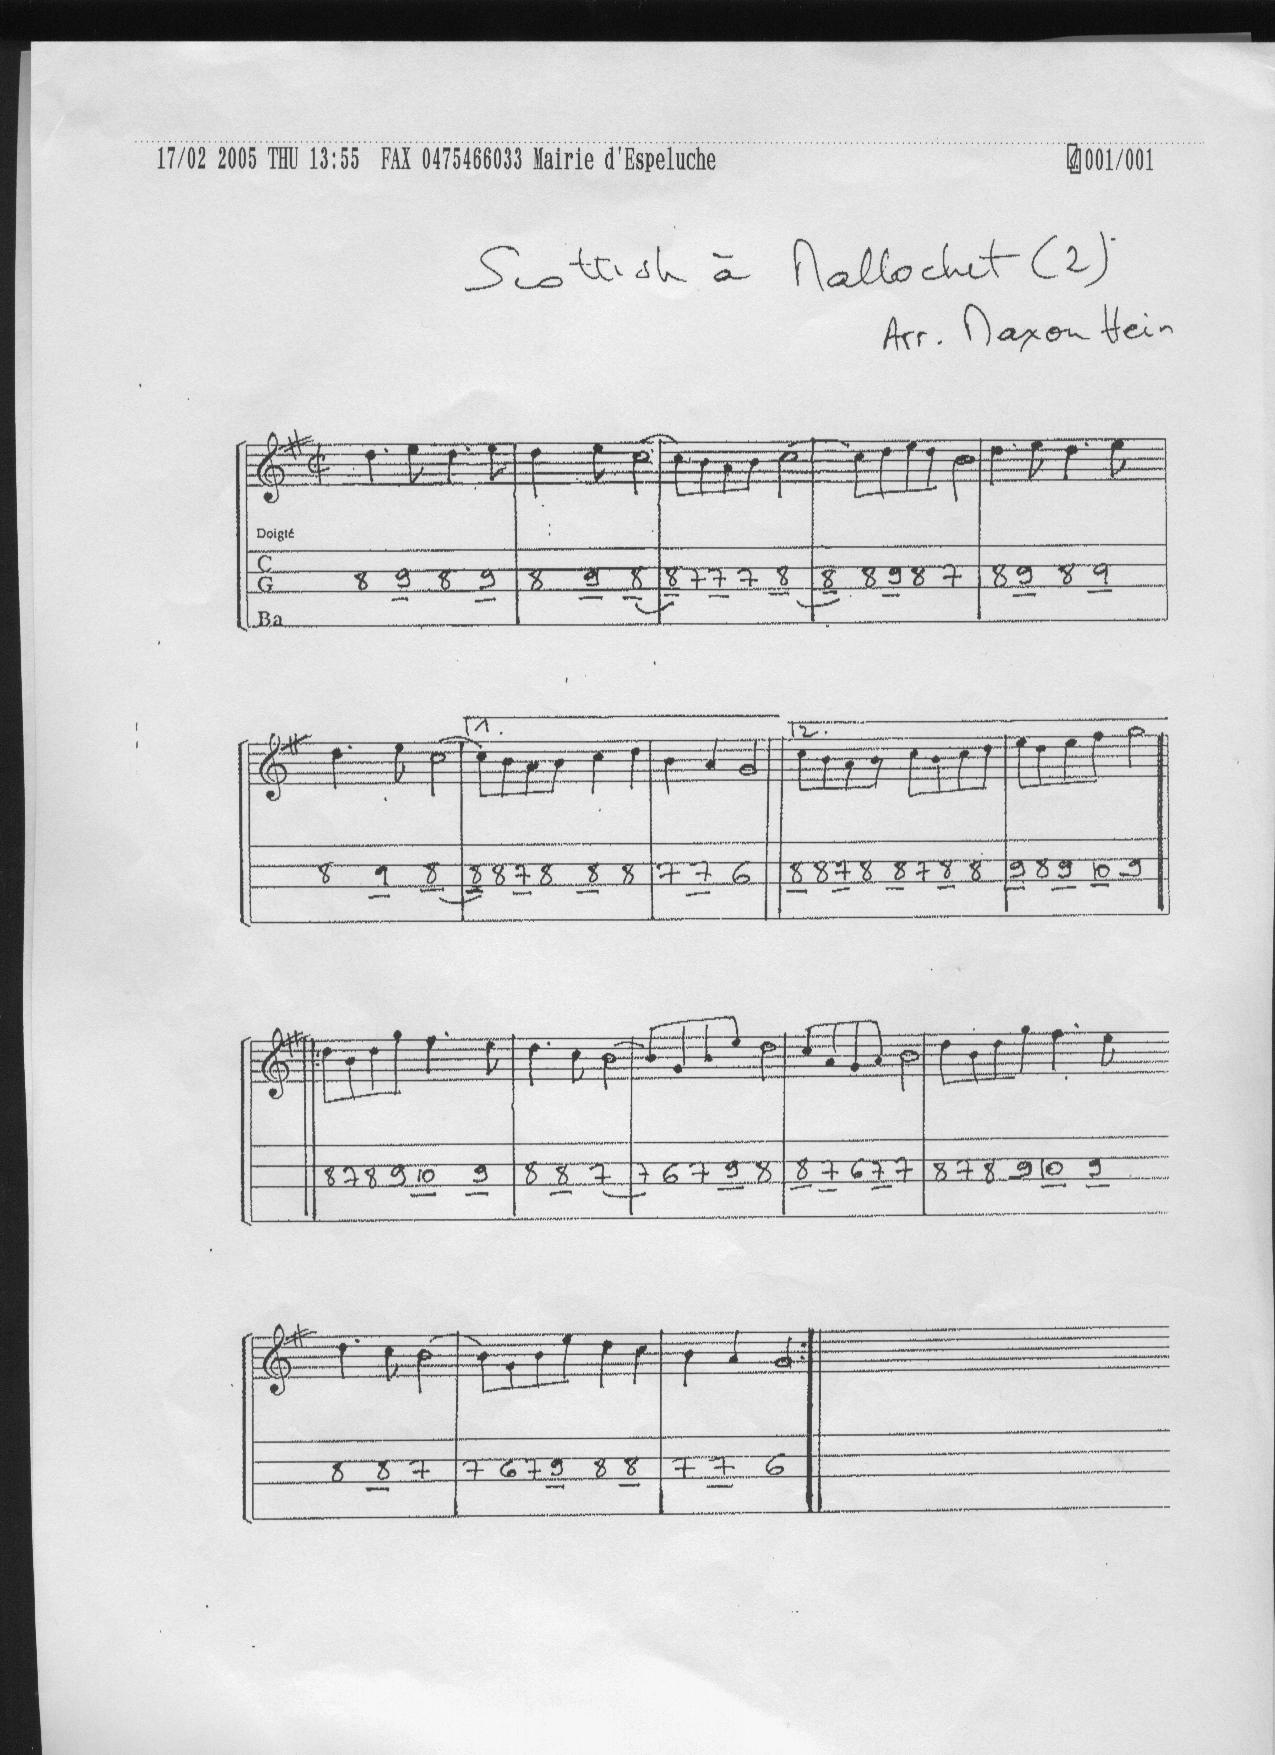 17/02 2005 THU 13:55 FAX 0475466033 Mairie d'Espeluche 001/001
Scottish à Mallochet (2)
Arr. Maxou Hein
Doigté
C
8 9 8 9 8 9 8 8 7 7 7 8 8 8 9 8 7 8 9 8 9
G
Ba
1. 2.
8 9 8 8 8 7 8 8 8 7 7 6 8 8 7 8 8 7 8 8 9 8 9 10 9
8 7 8 9 10 9 8 8 7 7 6 7 9 8 8 7 6 7 7 8 7 8 9 10 9
8 8 7 7 6 7 9 8 8 7 7 6